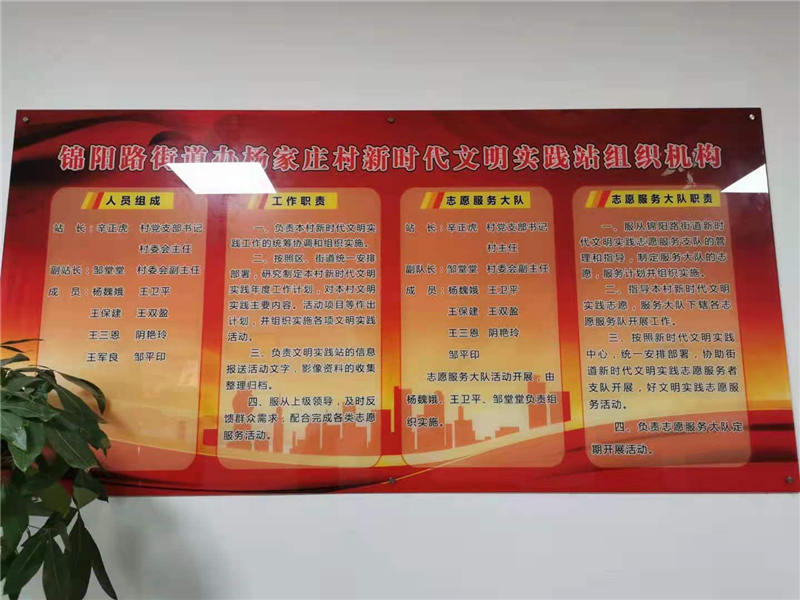 锦阳路街道办杨家庄村新时代文明实践站组织机构
人员组成
站　长：辛正虎　村党支部书记
村委会主任
副站长：邹堂堂　村委会副主任
成　员：杨魏娥　王卫平
王保建　王双盈
王三恩　阴艳玲
王军良　邹平印
工作职责
一、负责本村新时代文明实
践工作的统筹协调和组织实施。
二、按照区、街道统一安排
部署，研究制定本村新时代文明
实践年度工作计划，对本村文明
实践主要内容、活动项目等作出
计划，并组织实施各项文明实践
活动。
三、负责文明实践站的信息
报送活动文字，影像资料的收集
整理归档。
四、服从上级领导，及时反
馈群众需求，配合完成各类志愿
服务活动。
志愿服务大队
站　长：辛正虎　村党支部书记
村主任
副队长：邹堂堂　村委会副主任
成　员：杨魏娥　王卫平
王保建　王双盈
王三恩　阴艳玲
邹平印
志愿服务大队活动开展，由
杨魏娥、王卫平、邹堂堂负责组
织实施。
志愿服务大队职责
一、服从锦阳路街道新时
代文明实践志愿服务支队的管
理和指导，制定服务大队的志
愿，服务计划并组织实施。
二、指导本村新时代文明
实践志愿，服务大队下辖各志
愿服务队开展工作。
三、按照新时代文明实践
中心，统一安排部署，协助街
道新时代文明实践志愿服务者
支队开展，好文明实践志愿服
务活动。
四、负责志愿服务大队定
期开展活动。